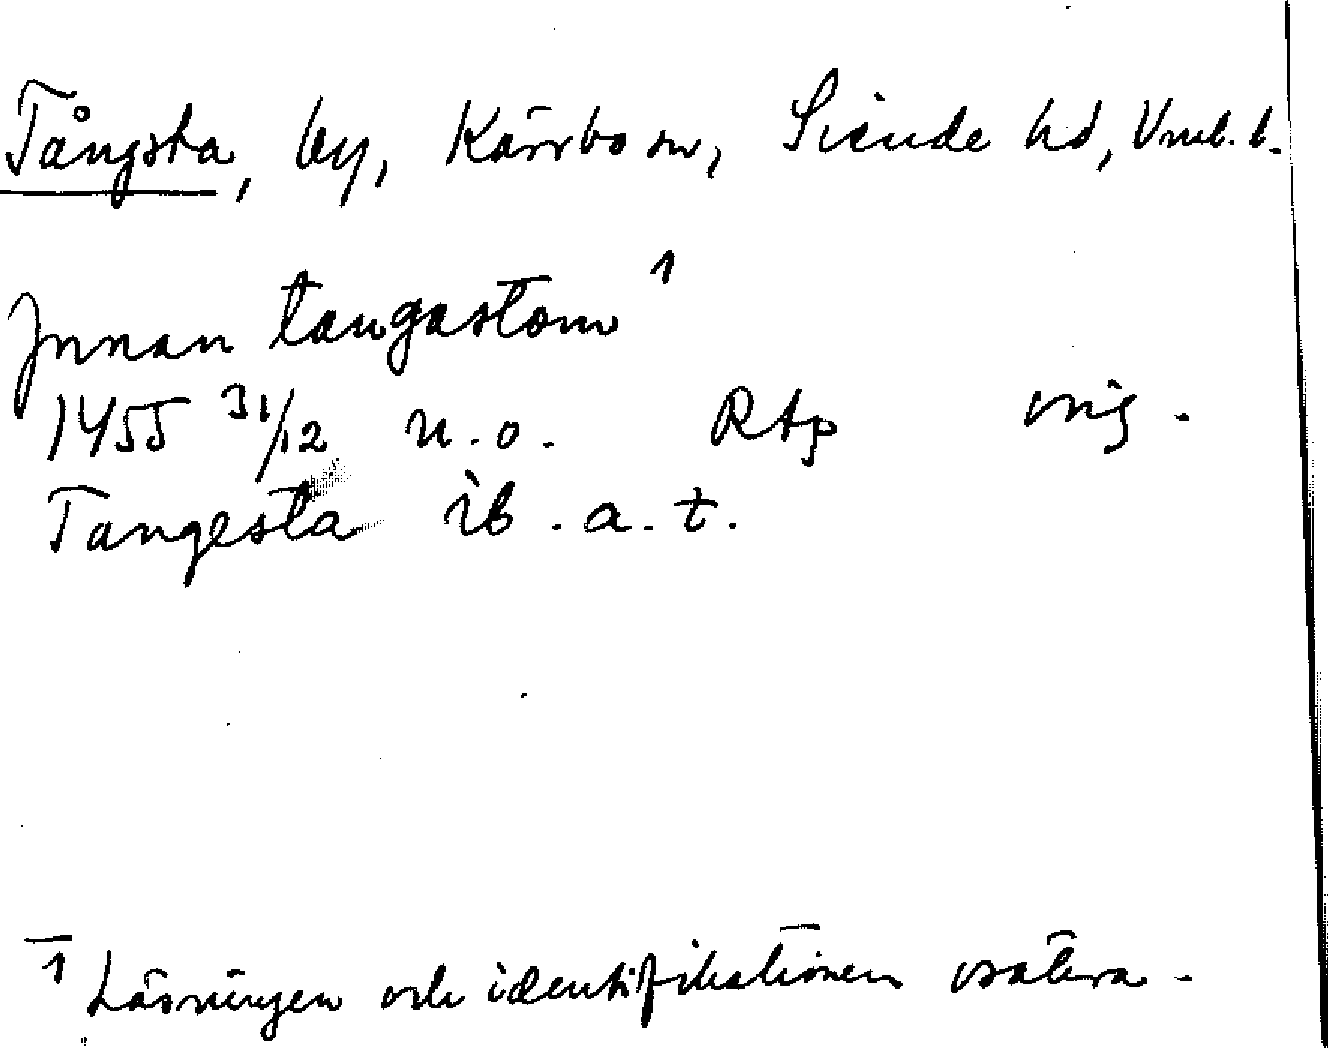 Tångsta, by, Kärrbo sn, Siende hd, Vml. l.
Jnnan tangastom 1
1455 31/12 u.o. Rap orig.
Tangesta ib. a. t.
1 Läsningen och identifikationen osäkra.